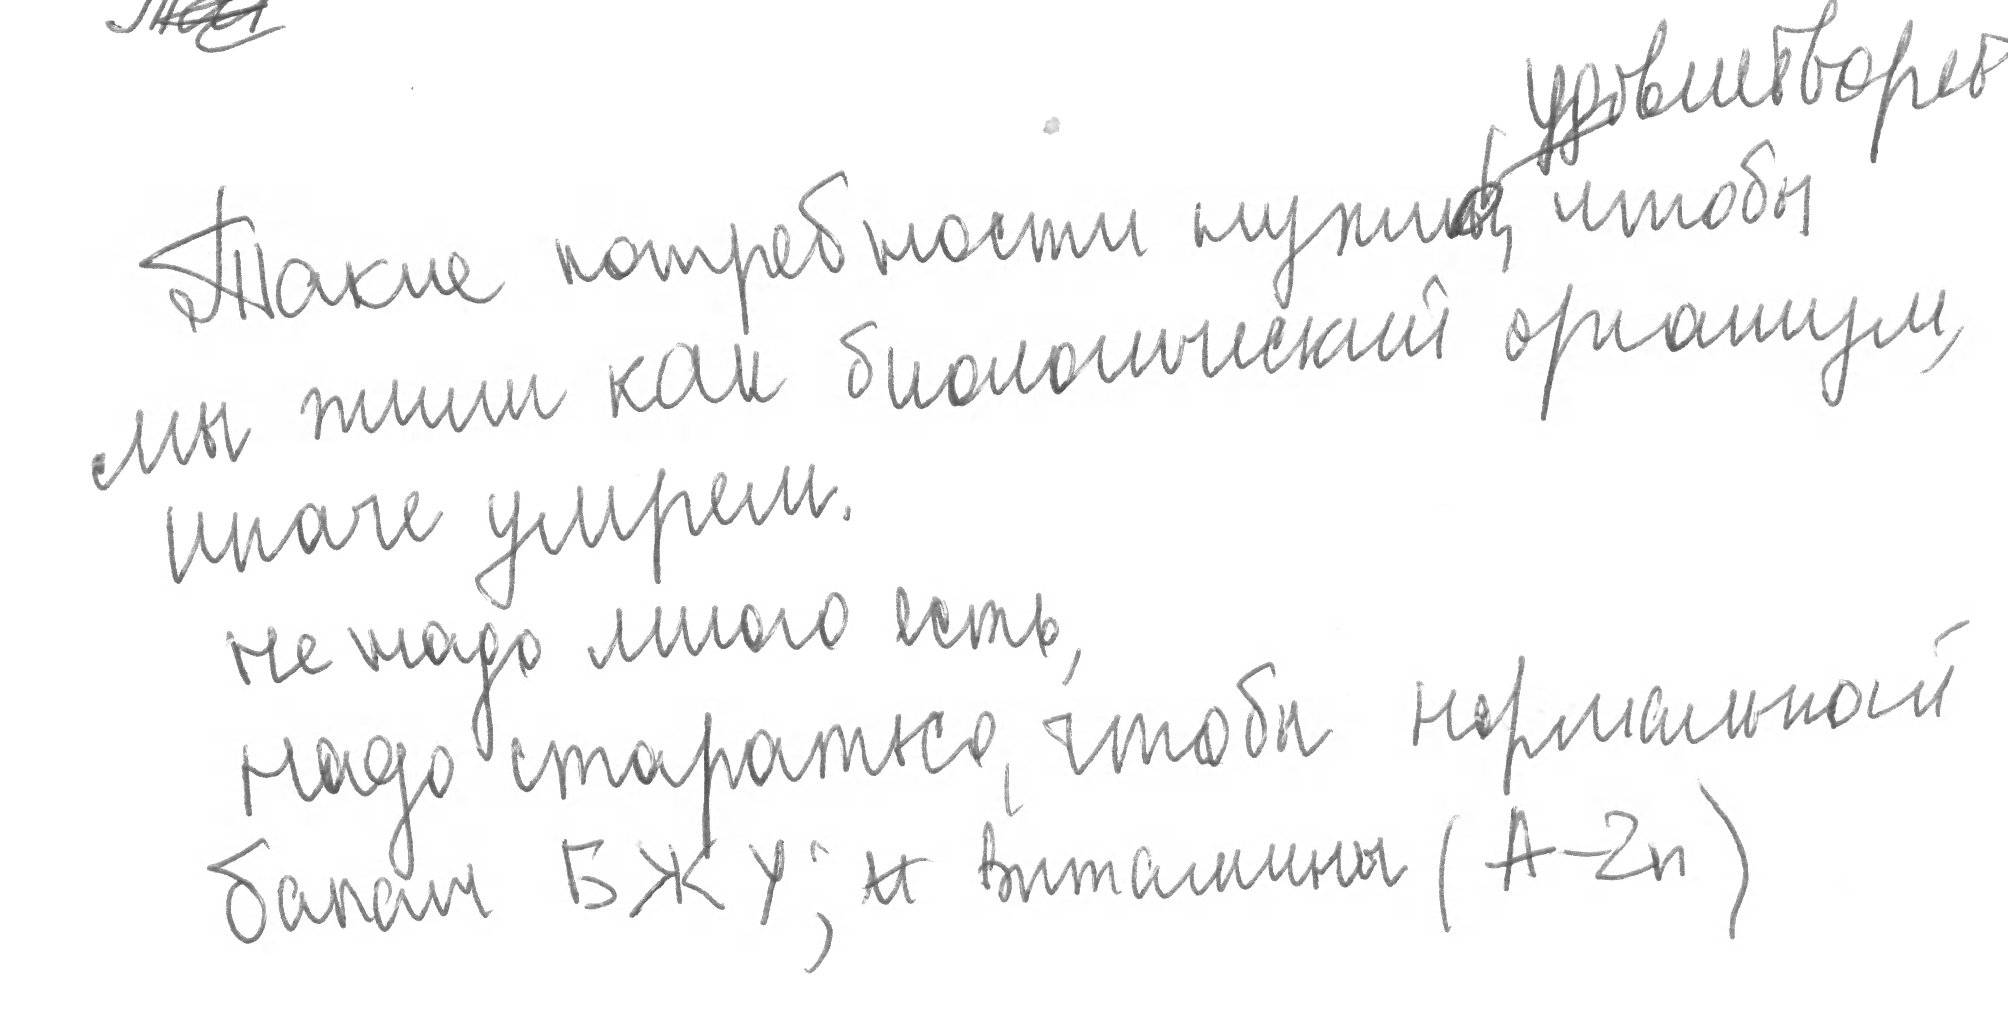 удовлетворят
Такие потребности нужно, чтобы
мы жили как биологический организм,
иначе умрем.
не надо много есть,
надо старатьсо, чтобы нормальной
баланс БЖУ; и витамины (A-Zn)